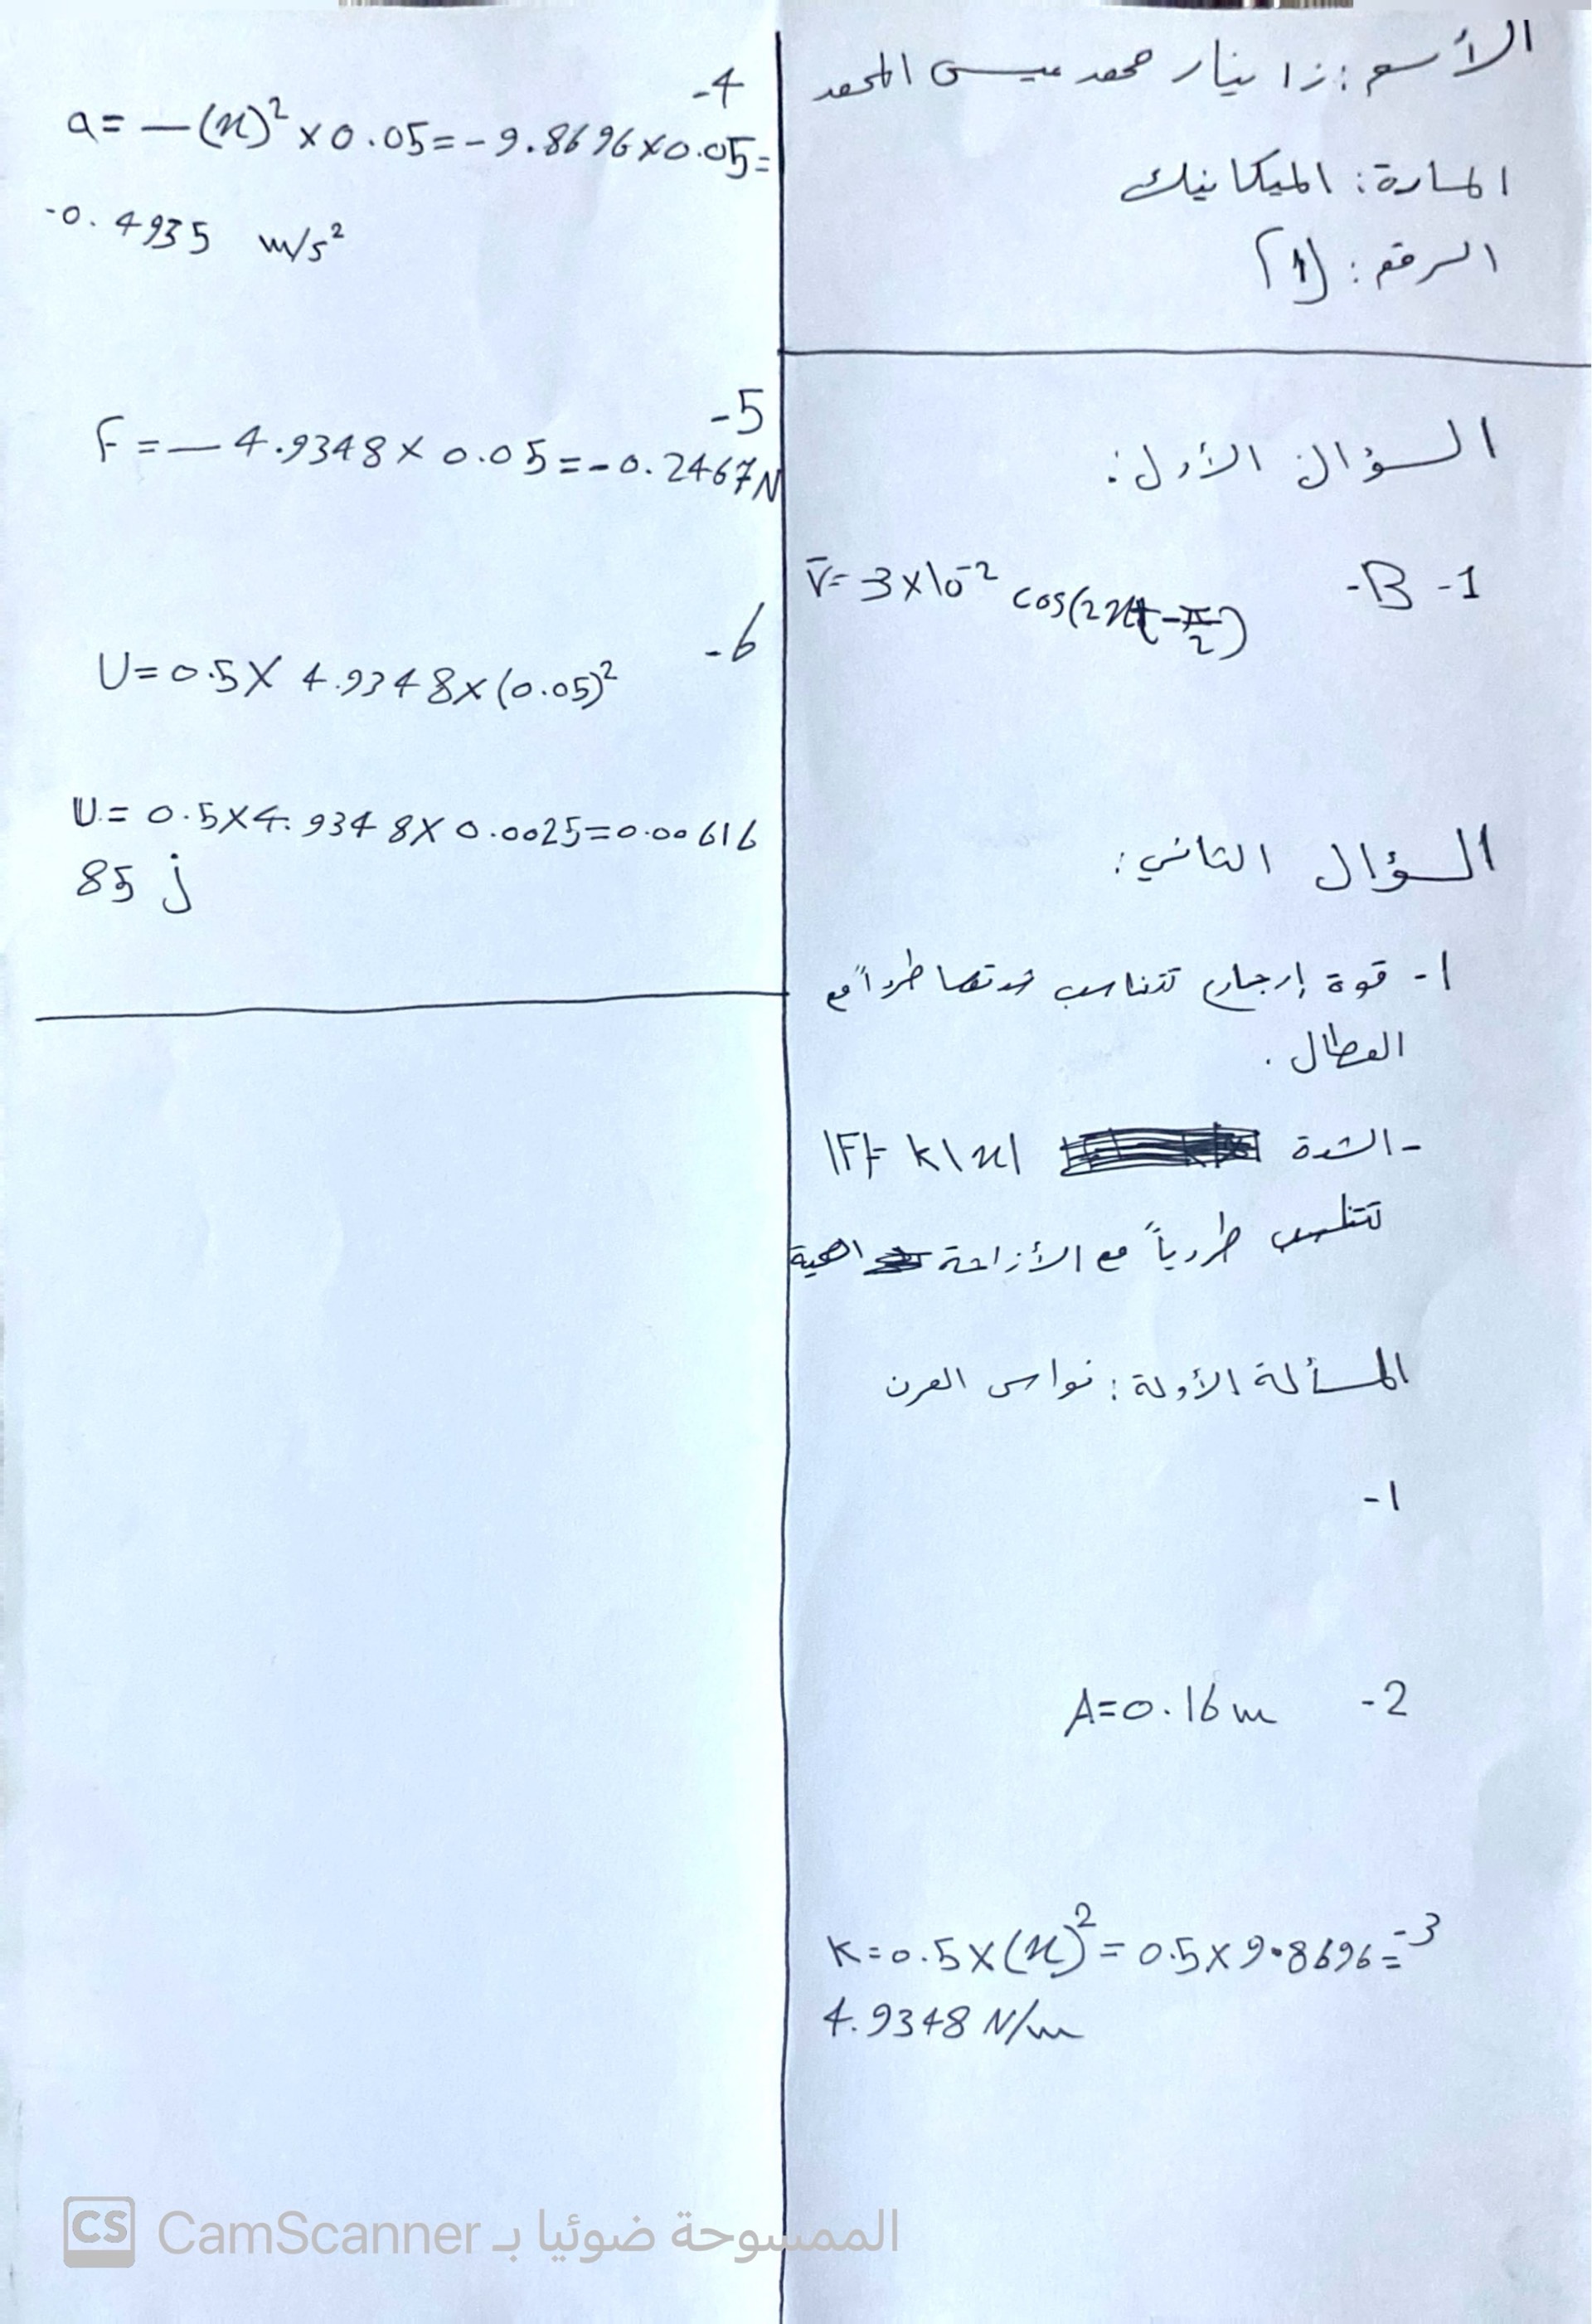 الأسم: زانيار محمد عيسى المحمد
المادة: الميكانيك
الرقم: (1)
السؤال الأول:
1- B-
v̄= 3×10⁻² cos(2πt-π/2)
السؤال الثاني:
1- قوة إرجاع تتناسب شدتها طرداً مع
المطال.
-الشدة |F|= k|x|
تتناسب طردياً مع الأزاحة
المسألة الأولة: نواس المرن
1-
2- A=0.16m
3- K=0.5×(π)²=0.5×9.8696=
4.9348 N/m
4-
a=-(π)²×0.05=-9.8696×0.05=
-0.4935 m/s²
5-
F=-4.9348×0.05=-0.2467N
6-
U=0.5×4.9348×(0.05)²
U=0.5×4.9348×0.0025=0.00616
85 j
CS CamScanner الممسوحة ضوئيا بـ